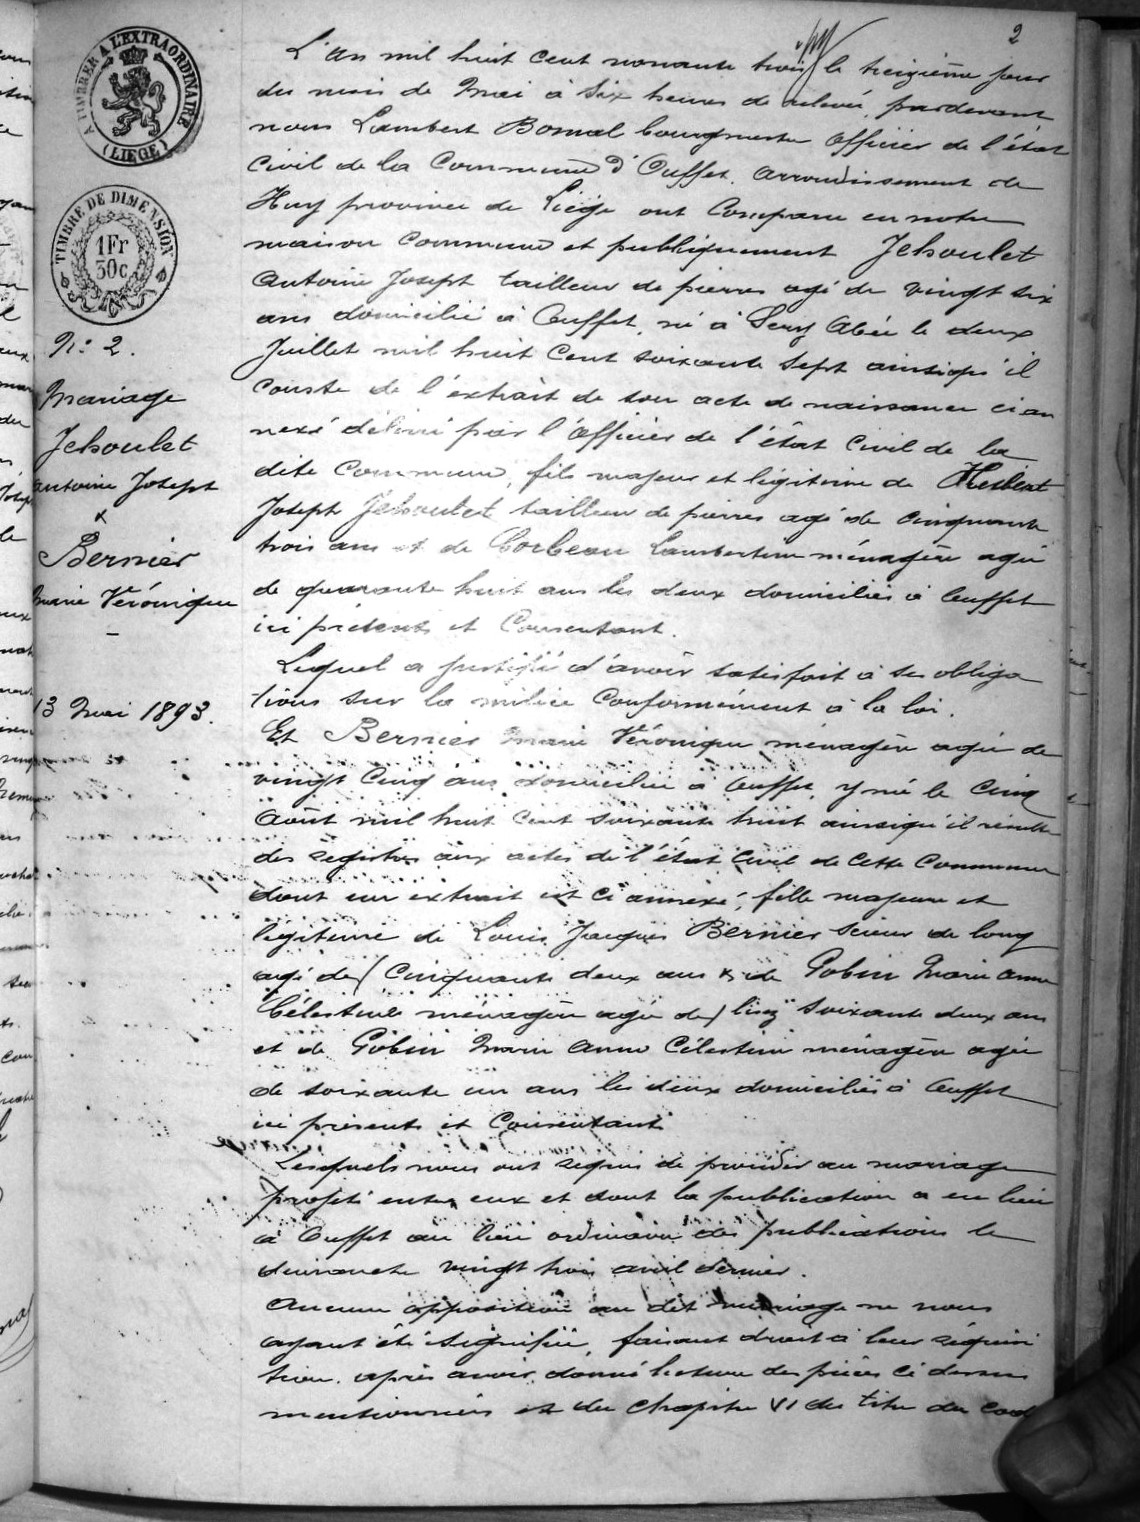 2
A TIMBRER A L'EXTRAORDINAIRE
(LIEGE)
TIMBRE DE DIMENSION
1Fr
30c
N: 2.
Mariage
Jehoulet
Antoine Joseph
x
Bernier
Marie Véronique
13 Mai 1893.
L'an mil huit cent nonante trois le treizième jour
du mois de Mai à six heures de relevée, pardevant
nous Lambert Bomal bourgmestre Officier de l'état
civil de la Commune d'Ouffet. arrondissement de
Huy province de Liége ont Comparu en notre
maison commune et publiquement Jehoulet
Antoine Joseph tailleur de pierres agé de vingt six
ans domicilié à Ouffet, né à Seny Abée le deux
Juillet mil huit Cent soixante sept ainsiqu'il
conste de l'extrait de son acte de naissance ci an
nexé délivré par l'officier de l'état civil de la
dite commune, fils majeur et légitime de
Joseph Jehoulet tailleur de pierres agé de cinquante
trois ans et de Corbeau Lambertine ménagère agée
de quarante huit ans les deux domiciliés à Ouffet
ici présents et Consentant.
Lequel a justifié d'avoir satisfait à ses obliga
tions sur la milice Conformément à la loi.
Et Bernier Marie Véronique ménagère agée de
vingt Cinq ans domiciliée à Ouffet, y née le Cinq
Août mil huit Cent soixante huit ainsiqu'il résulte
des registres aux actes de l'état civil de cette Commune
dont un extrait est ci annexé, fille majeure et
légitime de Louis Jacques Bernier scieur de long
agé de (Cinquante deux ans et de Gobin Marie Anne
Célestine ménagère agée de) lisez soixante deux ans
et de Gobin Marie Anne Célestine ménagère agée
de soixante un ans les deux domiciliés à Ouffet
ici présents et Consentant
Lesquels nous ont requis de procéder au mariage
projeté entre eux et dont la publication a eu lieu
à Ouffet au lieu ordinaire des publications le
dimanche vingt trois avril dernier.
Aucune opposition au dit mariage ne nous
ayant été signifiée, faisant droit à leur réquisi
tion. après avoir donné lecture des pièces ci dessus
mentionnées et du chapitre VI du titre du cod